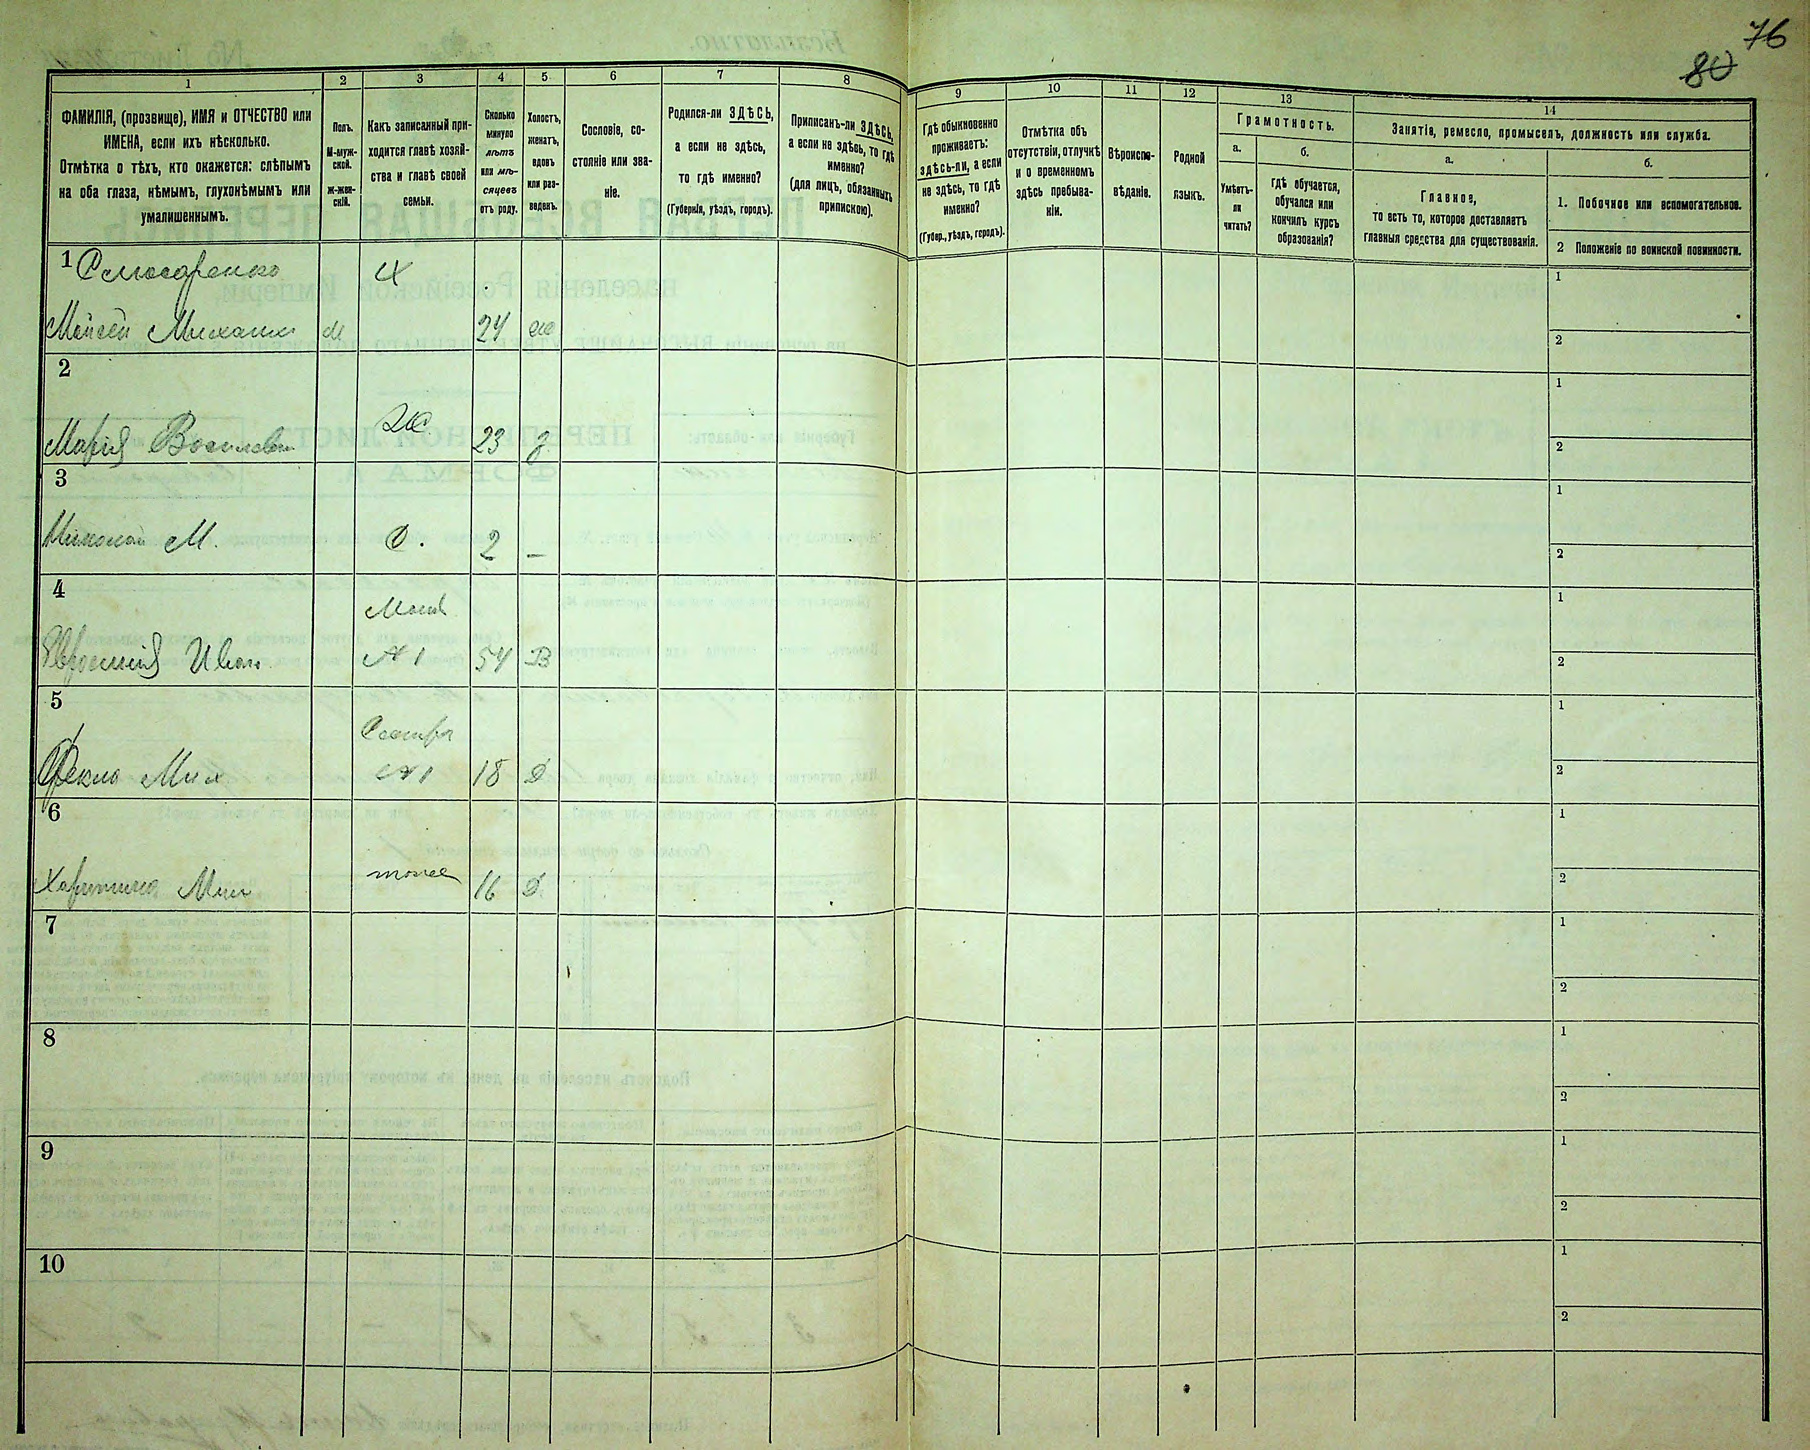 76
80
1
2
3
4
5
6
7
8
9
10
11
12
13
14
ФАМИЛІЯ, (прозвище), ИМЯ и ОТЧЕСТВО или
ИМЕНА, если ихъ нѣсколько.
Отмѣтка о тѣхъ, кто окажется: слѣпымъ
на оба глаза, нѣмымъ, глухонѣмымъ или
умалишеннымъ.
Полъ.
М-муж-
ской.
ж-жен-
скій.
Какъ записанный при-
ходится главѣ хозяй-
ства и главѣ своей
семьи.
Сколько
минуло
лѣтъ
или мѣ-
сяцевъ
отъ роду.
Холостъ,
женатъ,
вдовъ
или раз-
веденъ.
Сословіе, со-
стояніе или зва-
ніе.
Родился-ли ЗДѢСЬ,
а если не здѣсь,
то гдѣ именно?
(Губернія, уѣздъ, городъ).
Приписанъ-ли ЗДѢСЬ,
а если не здѣсь, то гдѣ
именно?
(для лицъ, обязанныхъ
припискою).
Гдѣ обыкновенно
проживаетъ:
здѣсь-ли, а если
не здѣсь, то гдѣ
именно?
(Губер., уѣздъ, городъ).
Отмѣтка объ
отсутствіи, отлучкѣ
и о временномъ
здѣсь пребыва-
ніи.
Вѣроиспо-
вѣданіе.
Родной
языкъ.
Грамотность.
а.
Умѣетъ-
ли
читать?
б.
гдѣ обучается,
обучался или
кончилъ курсъ
образованія?
Занятіе, ремесло, промыселъ, должность или служба.
а.
Главное,
то есть то, которое доставляетъ
главныя средства для существованія.
б.
1. Побочное или вспомогательное.
2 Положеніе по воинской повинности.
1 Слюсаренко
Х
Моисей Михаил м 24 ж
1
2
2
Марія Василев Ж 23 з
1
2
3
Николай М. С. 2 —
1
2
4
Мать
Ефросинія Иван №1 54 В
1
2
5
Сестра
Фекла Мих №1 18 д
1
2
6
Харитина Мих тоже 16 д
1
2
7
1
2
8
1
2
9
1
2
10
1
2